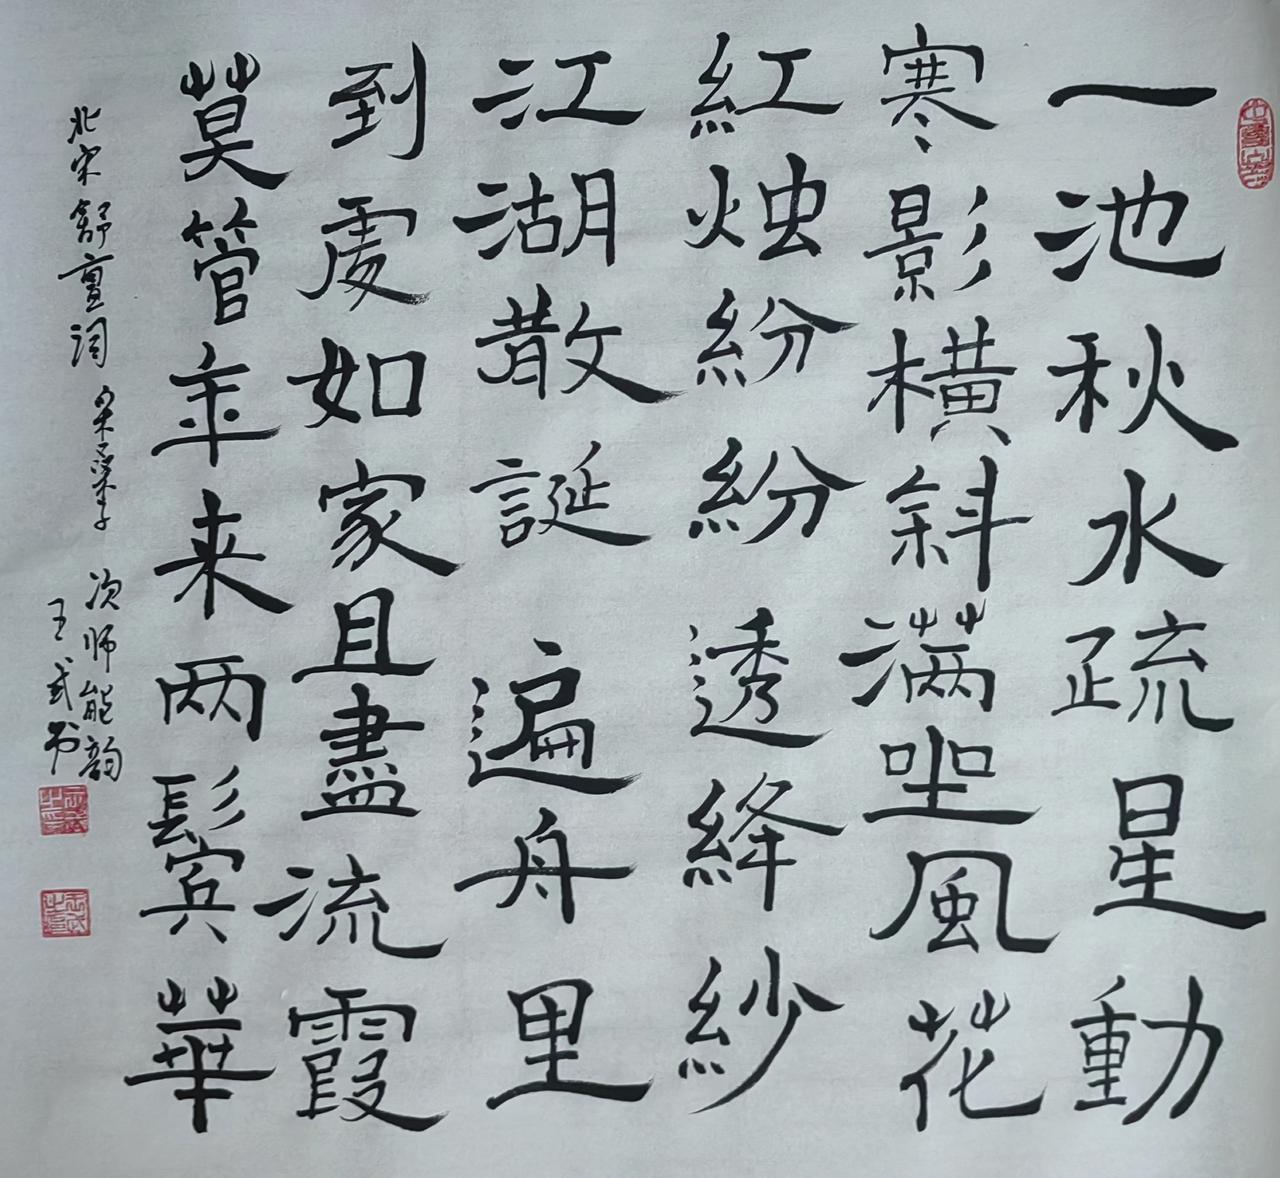 一池秋水疏星動
寒影橫斜满坐風花
紅烛紛紛透絳紗
江湖散誕遍舟里
到處如家且盡流霞
莫管年来两鬢華
北宋舒亶词 采桑子 次师能韵
王武书